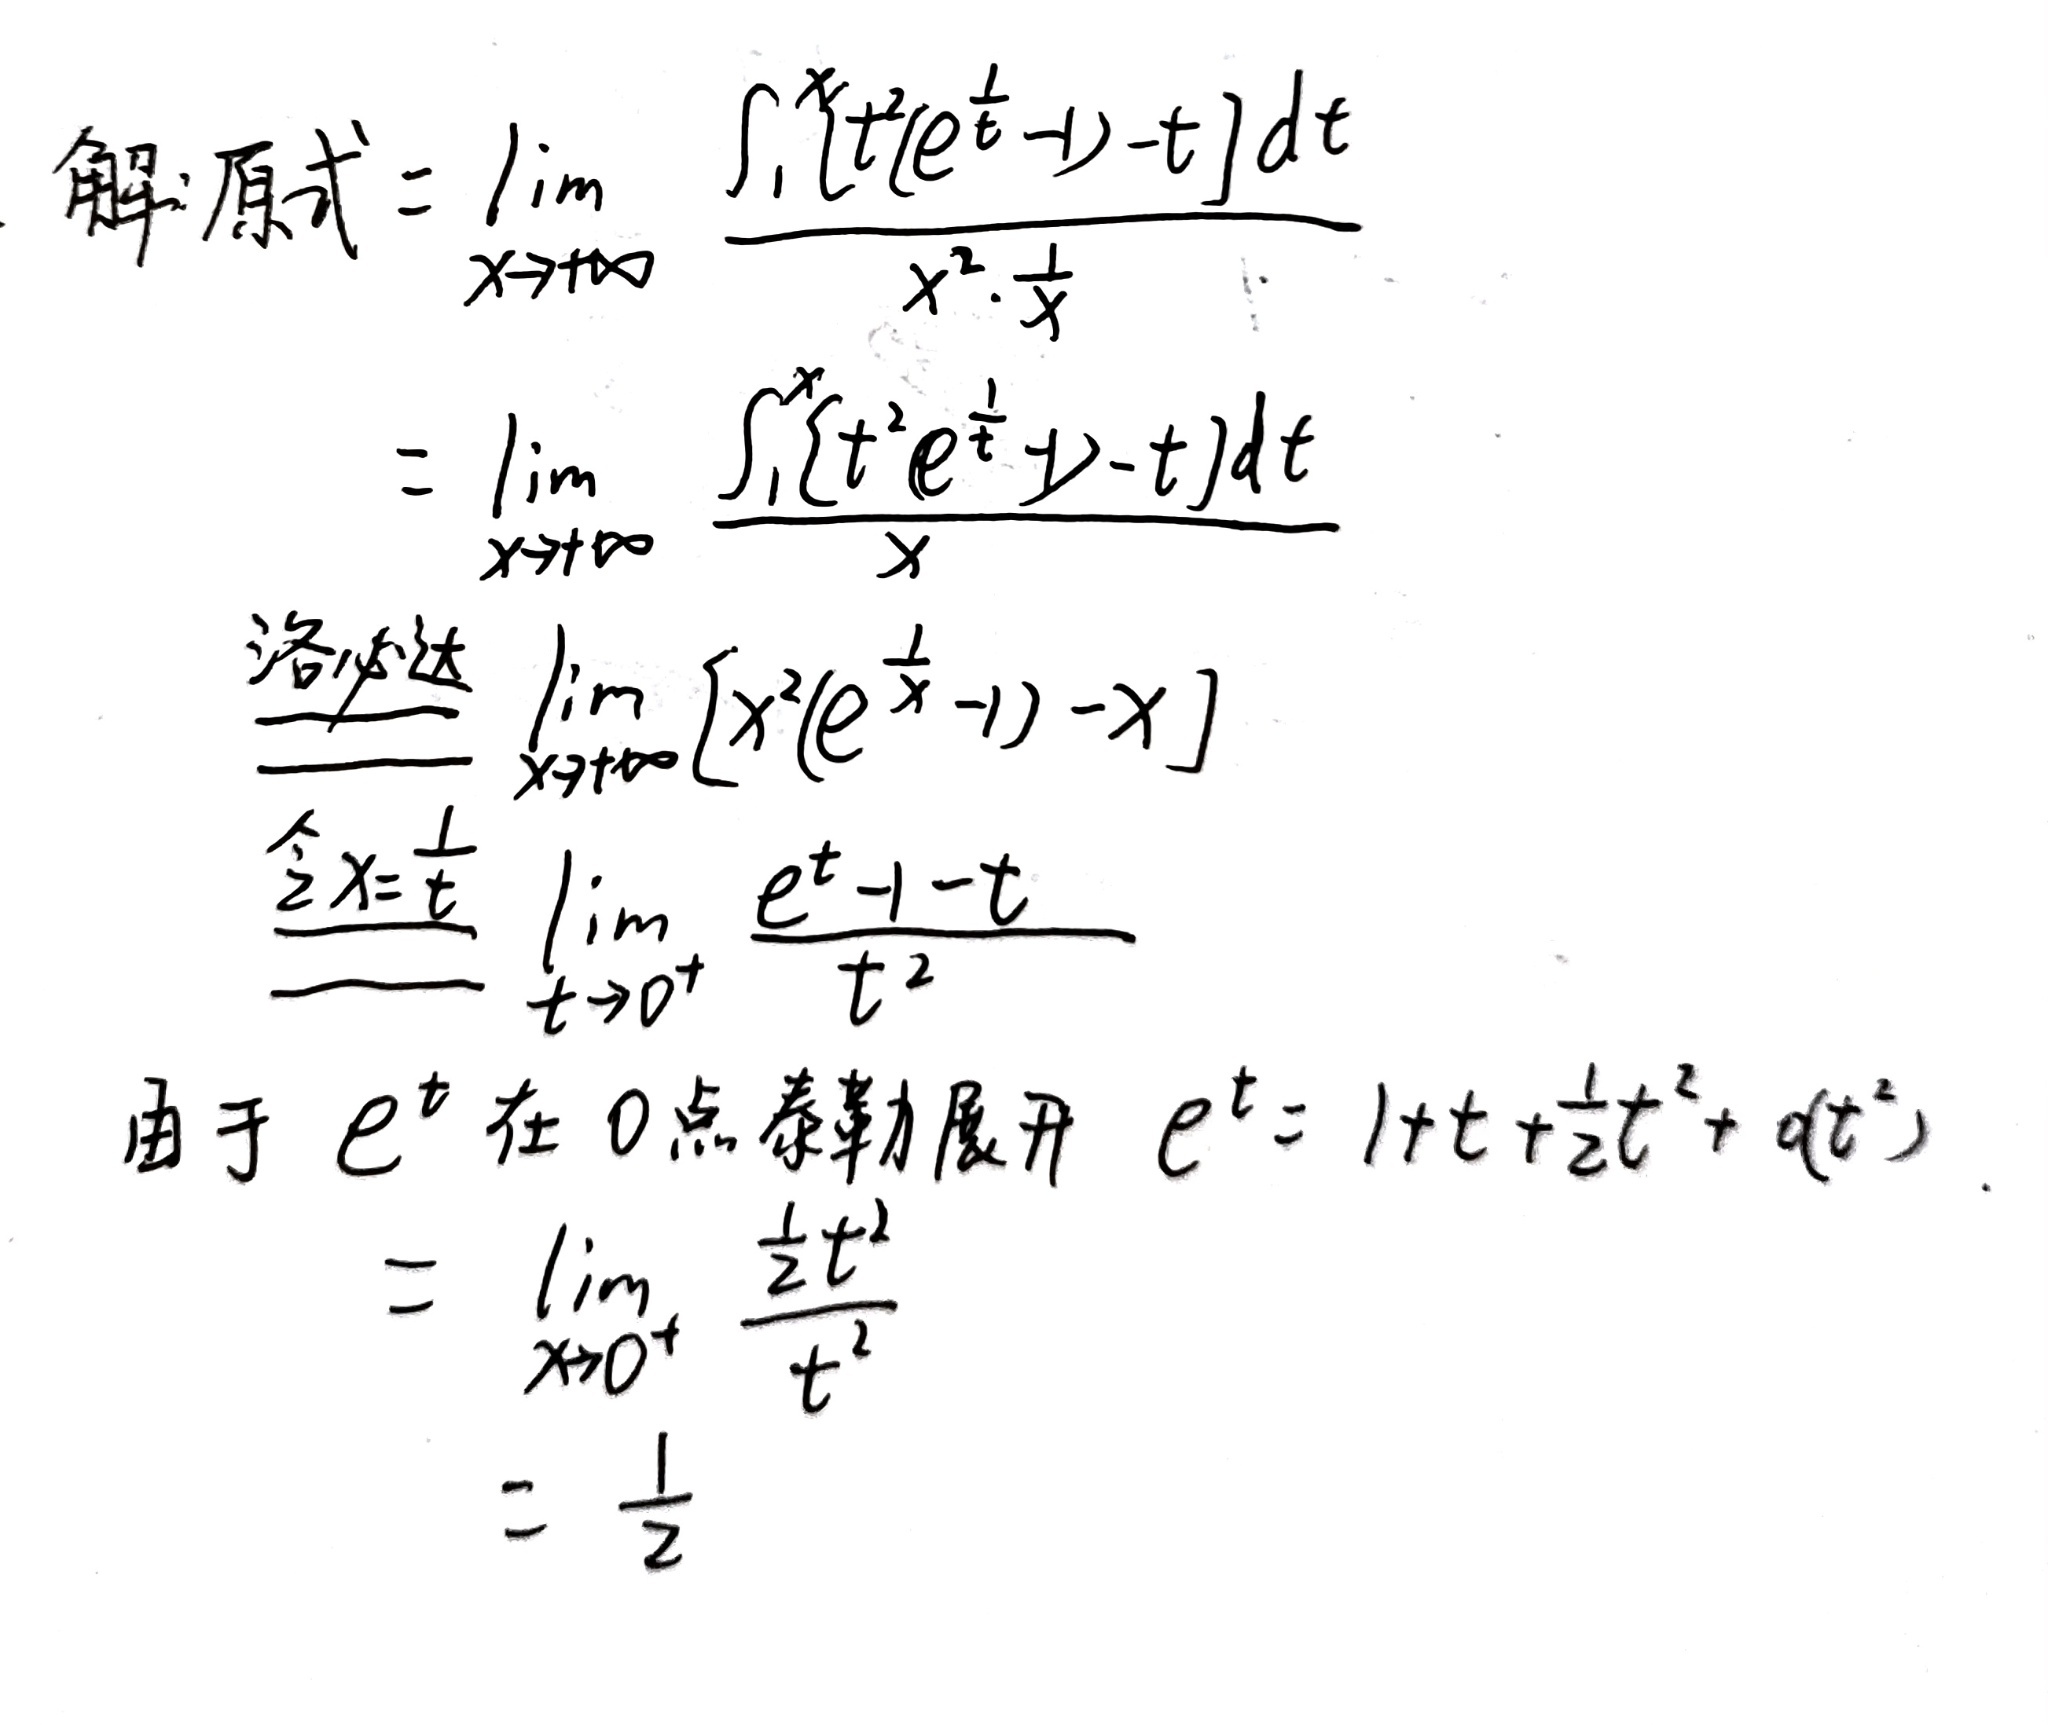 解:原式 = lim_{x→+∞} \frac{∫_1^x [t²(e^{\frac{1}{t}}-1)-t]dt}{x²·\frac{1}{x}}
= lim_{x→+∞} \frac{∫_1^x [t²(e^{\frac{1}{t}}-1)-t]dt}{x}
洛必达 = lim_{x→+∞} [x²(e^{\frac{1}{x}}-1)-x]
令x=\frac{1}{t} = lim_{t→0⁺} \frac{e^t-1-t}{t²}
由于 e^t 在 0点泰勒展开 e^t = 1+t+\frac{1}{2}t²+o(t²).
= lim_{x→0⁺} \frac{\frac{1}{2}t²}{t²}
= \frac{1}{2}